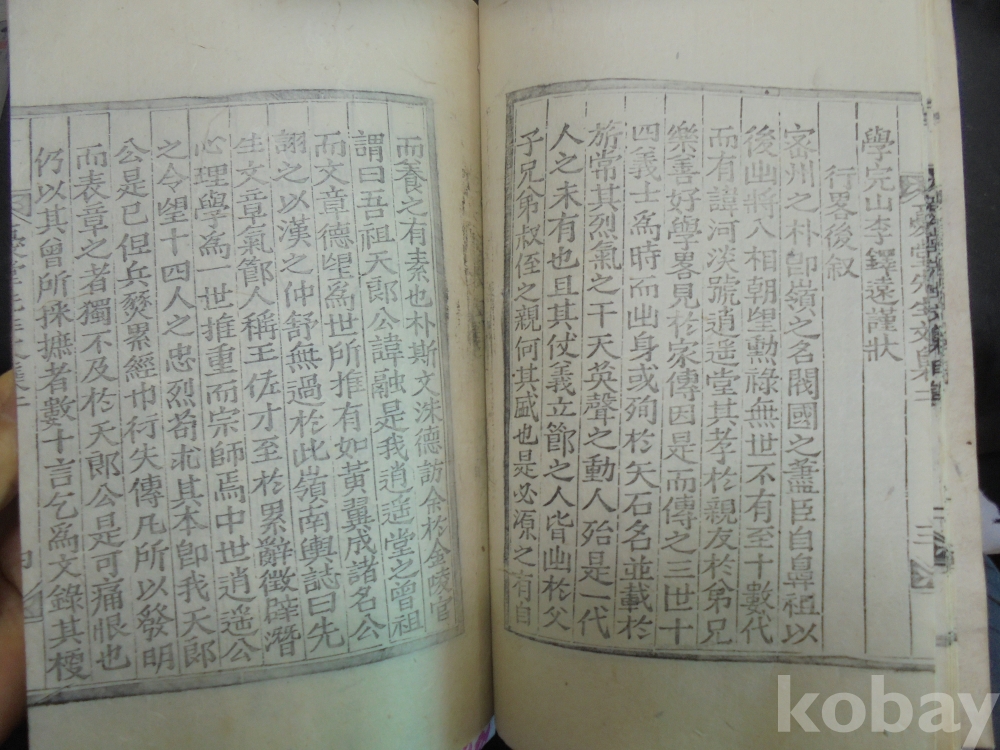 學完山李鐸遠謹狀
行畧後叙
密州之朴卽嶺之名閥國之藎臣自鼻祖以
後出將入相朝望勳祿無世不有至十數代
而有諱河淡號逍遥堂其孝於親友於弟兄
樂善好學畧見於家傳因是而傳之三世十
四義士爲時而出身或殉於矢石名並載於
旂常其烈氣之干天英聲之動人殆是一代
人之未有也且其仗義立節之人皆出於父
子兄弟叔侄之親何其盛也是必源之有自
而養之有素也朴斯文洙德訪余於金陵官
謂曰吾祖天郞公諱融是我逍遥堂之曾祖
而文章德望爲世所推有如黃翼成諸名公
詡之以漢之仲舒無過於此嶺南輿誌曰先
生文章氣節人稱王佐才至於累辭徵辟潛
心理學爲一世推重而宗師焉中世逍遥公
之令望十四人之忠烈苟求其本卽我天郞
公是已但兵燹累經巾衍失傳凡所以發明
而表章之者獨不及於天郞公是可痛恨也
仍以其曾所採摭者數十言乞爲文錄其梗
三
四
kobay